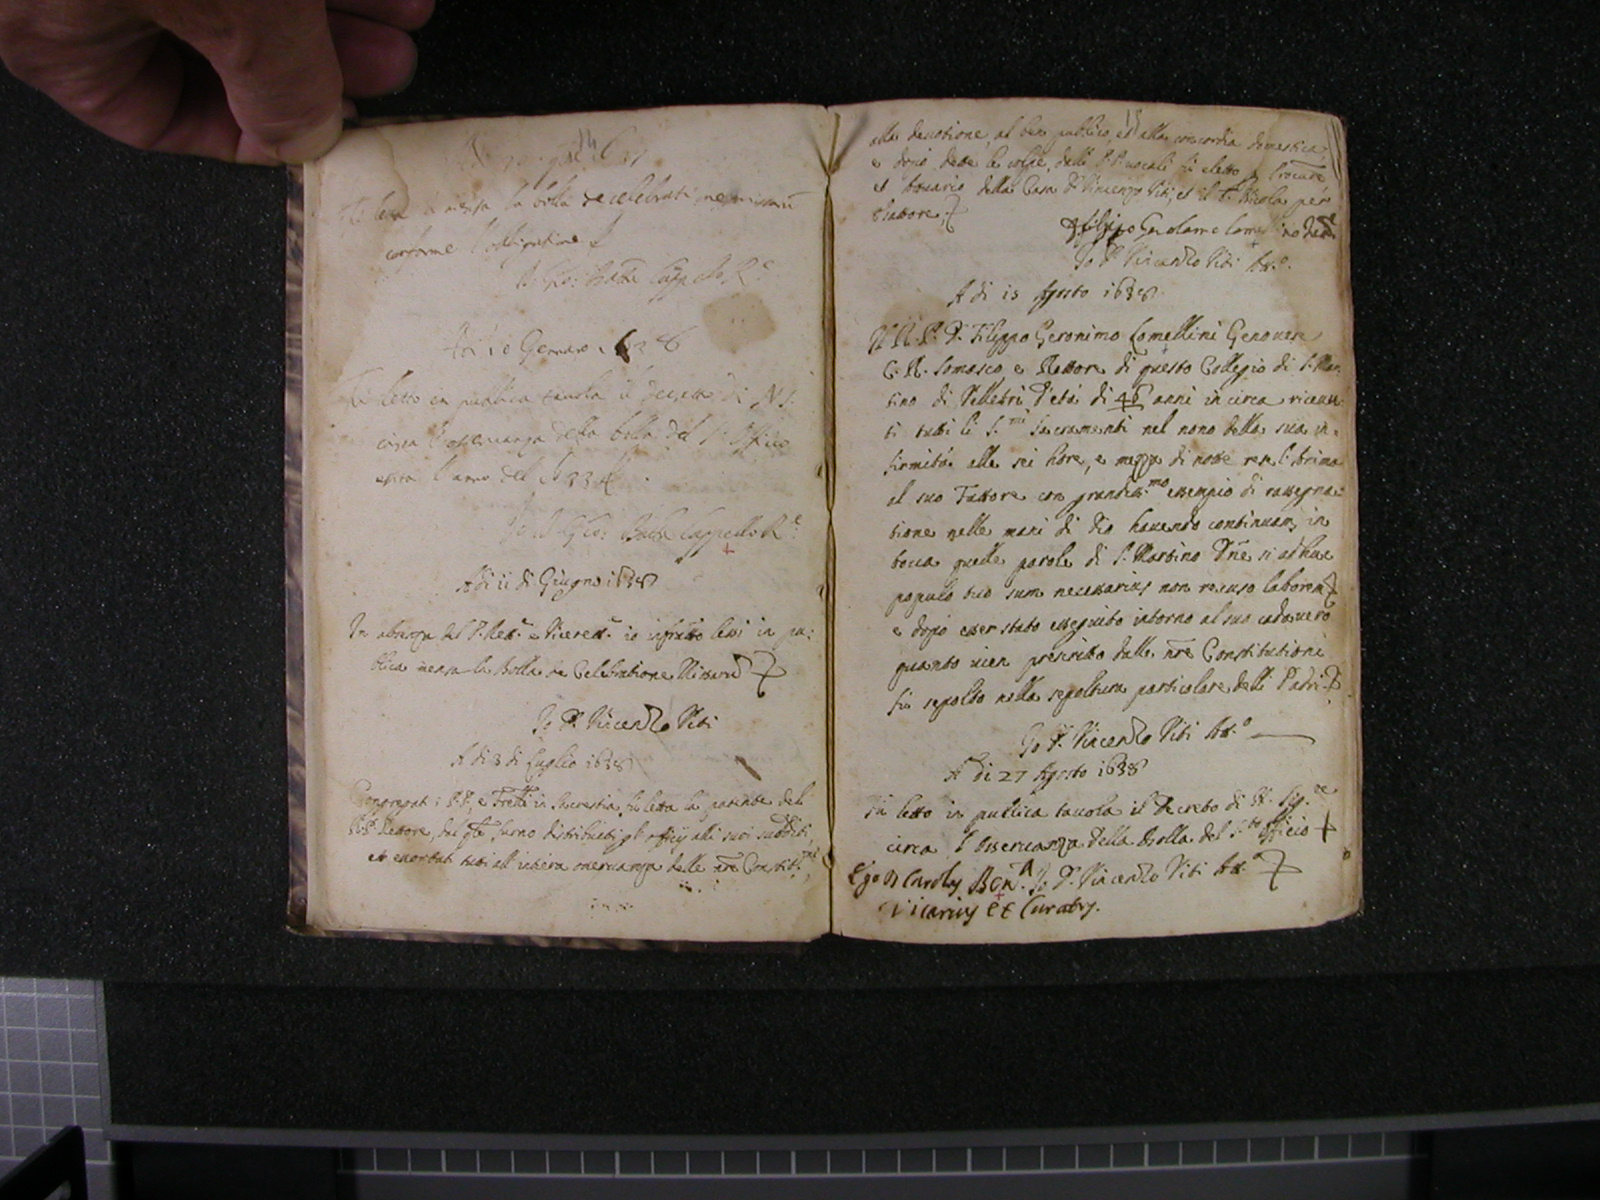 14
letta in mensa la bolla de celebratione missarum
conforme l'obligatione
A di 10 Gennaro 1638
Fu letto in publica tavola il decreto di N. S.
circa l'osservanza della bolla del S. Officio
l'anno del
Cappello R.e
A di 11 di Giugno 1638
In absenza del P. Rett.e e Vicerett.e io infratto lessi in pu:
blica mensa la Bolla de Celebratione Missarū
Io D. Vincenzo Viti
A di 3 di Luglio 1638
Congregati i PP. e Frelli in Sacrestia fu letta la patente del
P. Rettore, dal q̄le furno distribuiti gl'officij alli suoi sudditi,
et exortati tutti all'intiera osservanza delle nr̄e Constit.ni
15
alla devotione, al ben publico, et alla concordia domestica,
e dopo dette le colpe, delli PP. vocali fu eletto p Procurē
et Attuario della Casa D. Vincenzo Viti, et il F. Nicola per
Fattore
Filippo Gerolamo Lomellino
Io D. Vincenzo Viti Att.o
A di 15 Agosto 1638
Il M. R. P. D. Filippo Geronimo Lomellini Genovese
C. R. Somasco e Rettore di questo Collegio di S. Mar:
tino di Velletri d'età di 46 anni in circa ricevu:
ti tutti li S.mi Sacramenti nel nono della sua in:
firmità alle sei hore, e mezza di notte rese l'anima
al suo Fattore con grandiss.mo essempio di rassegna:
tione nelle mani di Dio havendo continuam. in
bocca quelle parole di S. Martino Dn̄e si adhuc
populo tuo sum necessarius non recuso laborem
e dopo esser stato essequito intorno al suo cadavero
quanto vien prescritto dalle nr̄e Constitutioni
fu sepolto nella sepoltura particolare delli Padri
Io D. Vincenzo Viti Att.o
A di 27 Agosto 1638
Fu letto in publica tavola il Decreto di N. Sig.re
circa l'osservanza della Bolla del S.to Officio
Ego D Carolus Io D. Vincenzo Viti Att.o
Vicarius et Curatus.